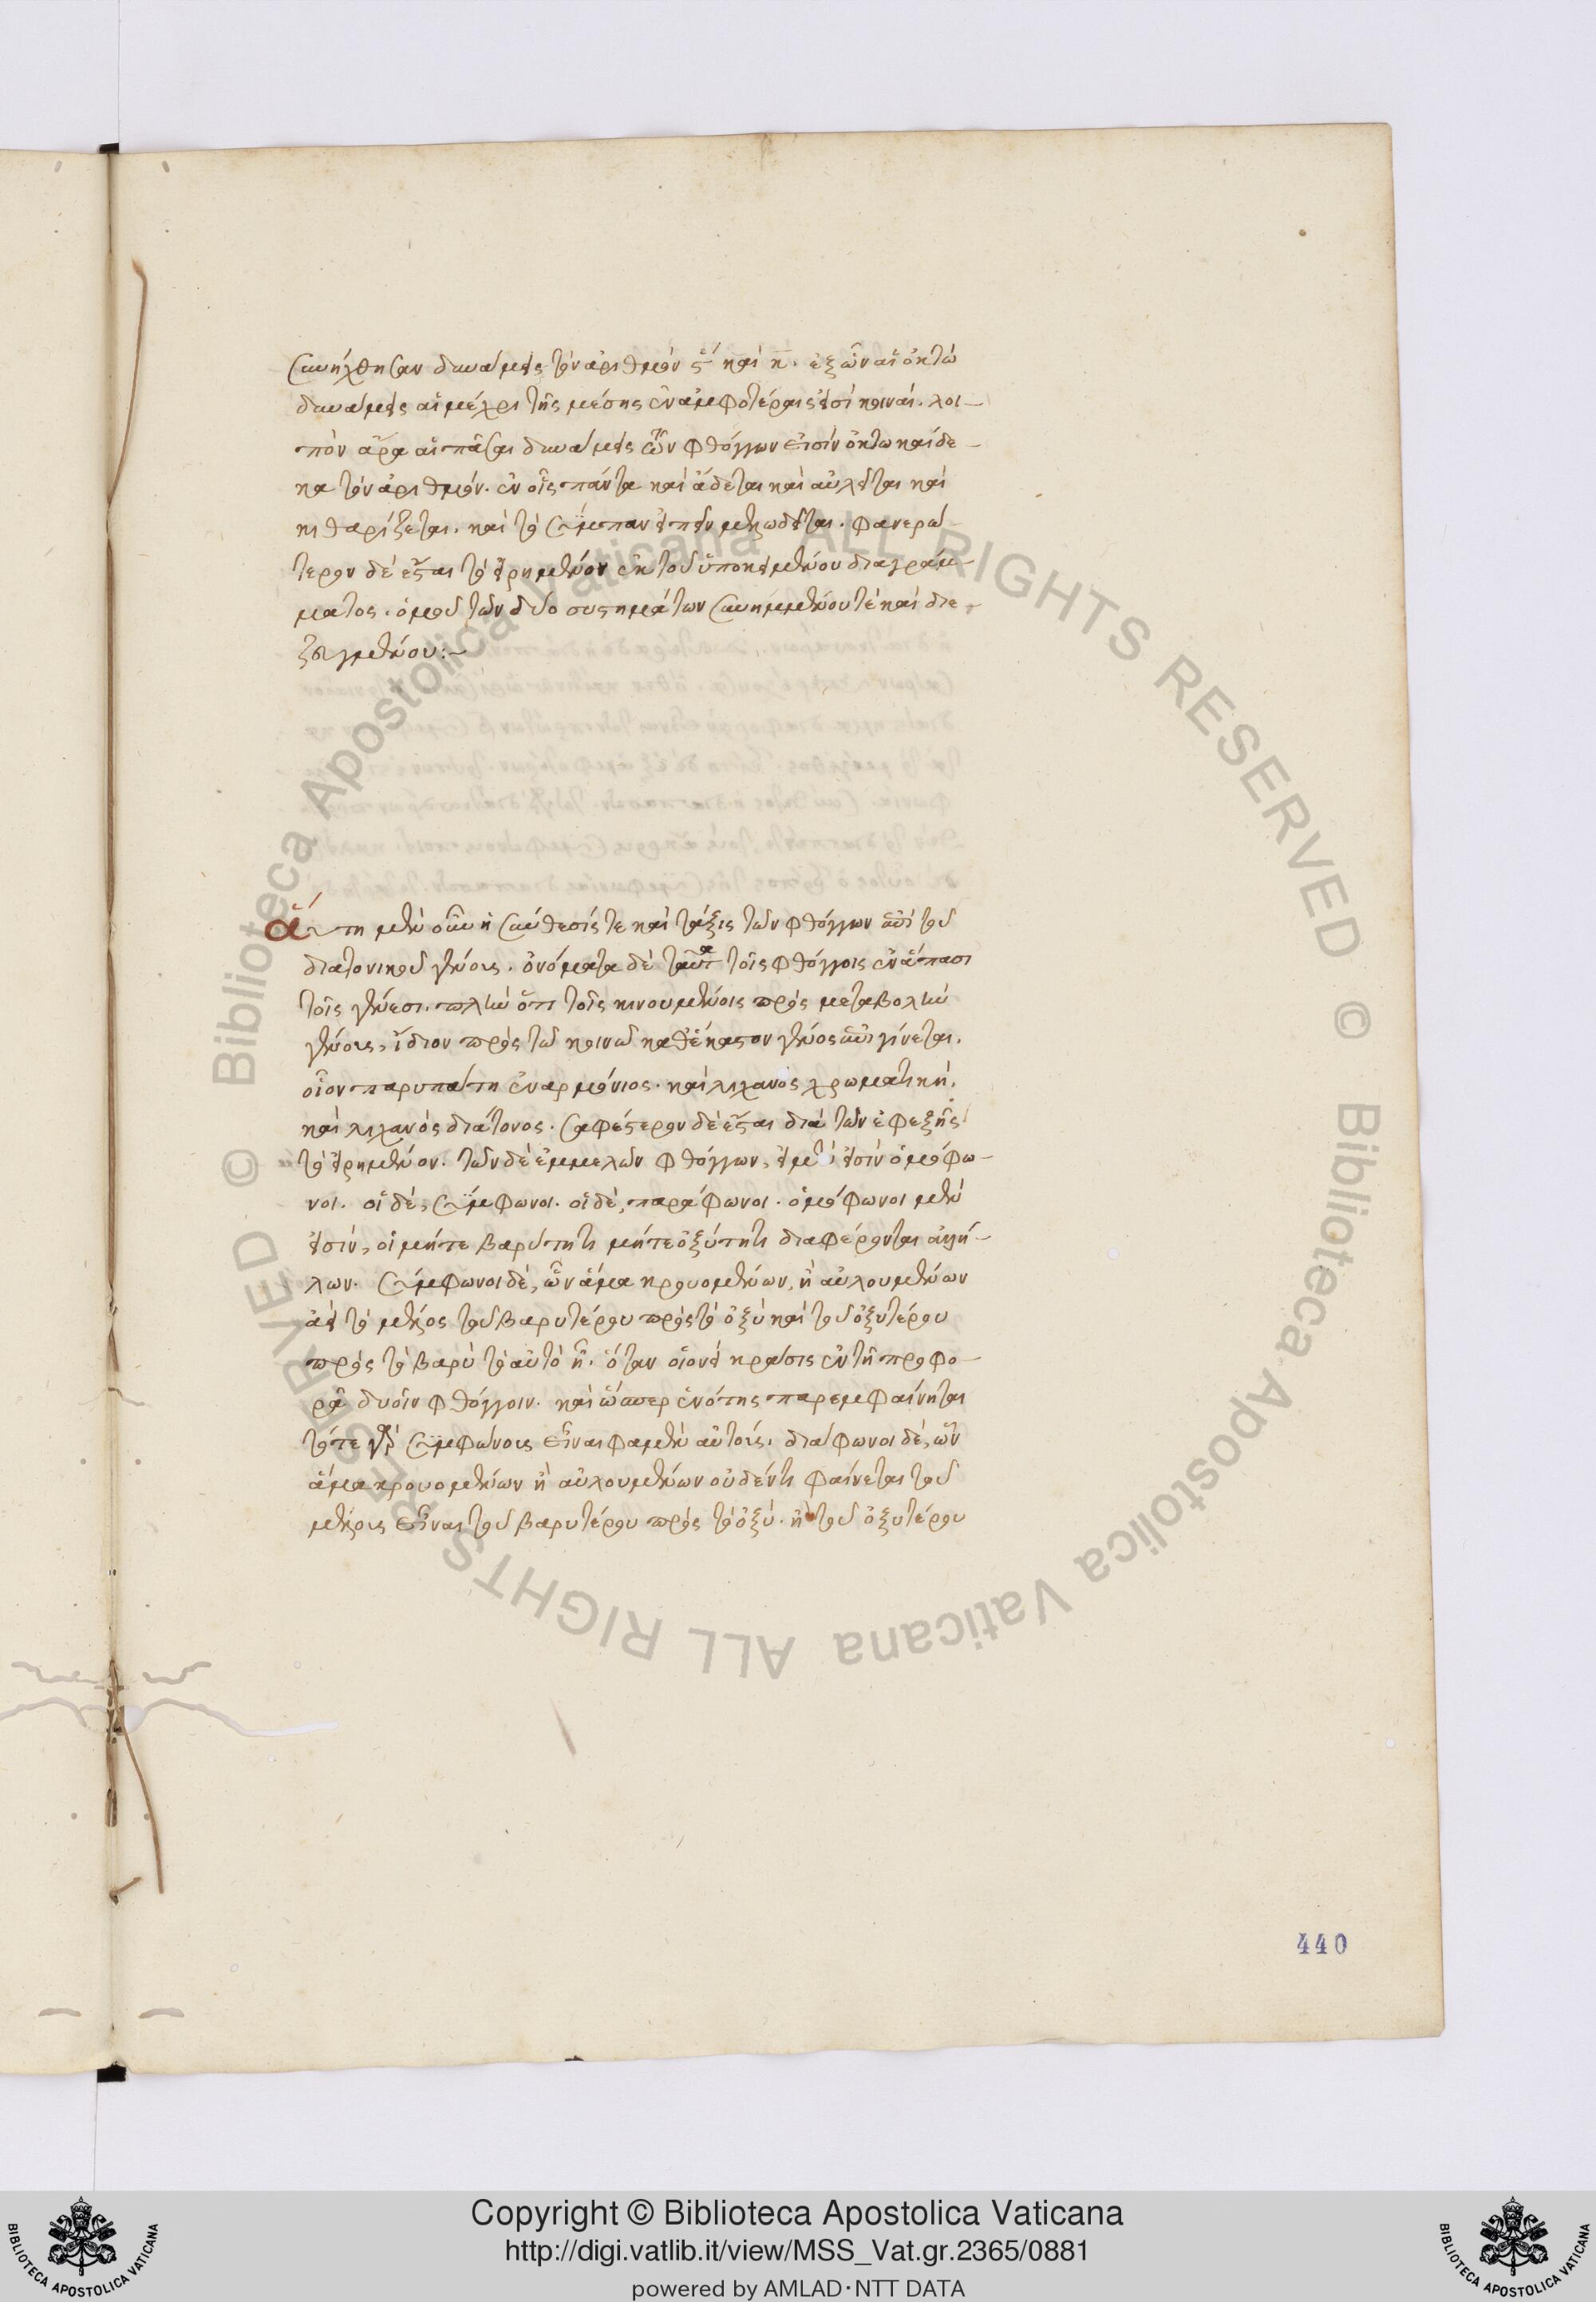 συνήχθησαν δυνάμεις τὸν ἀριθμὸν ϛ´ καὶ κ̅. ἐξ ὧν αἱ ὀκτὼ
δυνάμεις αἱ μέχρι τῆς μέσης ἐν ἀμφοτέραις εἰσὶ κοιναί. λοι-
πὸν ἄρα αἱ πᾶσαι δυνάμεις τῶν φθόγγων εἰσὶν ὀκτωκαίδε-
κα τὸν ἀριθμόν. ἐν οἷς πάντα καὶ ᾄδεται καὶ αὐλεῖται καὶ
κιθαρίζεται. καὶ τὸ σύμπαν εἰπεῖν μελωδεῖται. φανερώ-
τερον δὲ ἔσται τὸ εἰρημένον ἐκ τοῦ ὑποκειμένου διαγράμ-
ματος. ὁμοῦ τῶν δύο συστημάτων συνημμένου τὲ καὶ διε-
ζευγμένου:-
αὕτη μὲν οὖν ἡ σύνθεσίς τε καὶ τάξις τῶν φθόγγων ἐπὶ τοῦ
διατονικοῦ γένους. ὀνόματα δὲ ταῦτα τοῖς φθόγγοις ἐν ἅπασι
τοῖς γένεσι. πλὴν ὅτι τοῖς κινουμένοις πρὸς μεταβολὴν
γένους, ἴδιον πρὸς τῷ κοινῷ καθ' ἕκαστον γένος ἐπιγίνεται.
οἷον παρυπάτη ἐναρμόνιος. καὶ λιχανὸς χρωματική.
καὶ λιχανὸς διάτονος. σαφέστερον δὲ ἔσται διὰ τῶν ἐφεξῆς
τὸ εἰρημένον. τῶν δὲ ἐμμελῶν φθόγγων, οἱ μέν εἰσὶν ὁμόφω-
νοι. οἱ δὲ, σύμφωνοι. οἱ δὲ, παράφωνοι. ὁμόφωνοι μέν
εἰσὶν, οἱ μήτε βαρύτητι μήτε ὀξύτητι διαφέρονται ἀλλή-
λων. σύμφωνοι δὲ, ὧν ἅμα κρουομένων, ἢ αὐλουμένων
ἀεὶ τὸ μέλος τοῦ βαρυτέρου πρὸς τὸ ὀξὺ καὶ τοῦ ὀξυτέρου
πρὸς τὸ βαρὺ τὸ αὐτὸ ᾖ. ὅταν οἱονεὶ κρᾶσις ἐν τῇ προφο-
ρᾷ δυοῖν φθόγγοιν. καὶ ὥσπερ ἑνότης παρεμφαίνηται
τότε γὰρ συμφώνους εἶναι φαμὲν αὐτούς. διάφωνοι δὲ, ὧν
ἅμα κρουομένων ἢ αὐλουμένων οὐδέν τι φαίνεται τοῦ
μέλους εἶναι τοῦ βαρυτέρου πρὸς τὸ ὀξύ. ἢ τοῦ ὀξυτέρου
440
© Biblioteca Apostolica Vaticana ALL RIGHTS RESERVED © Biblioteca Apostolica Vaticana ALL RIGHTS RESERVED
Copyright © Biblioteca Apostolica Vaticana
http://digi.vatlib.it/view/MSS_Vat.gr.2365/0881
powered by AMLAD·NTT DATA
BIBLIOTECA APOSTOLICA VATICANA
BIBLIOTECA APOSTOLICA VATICANA